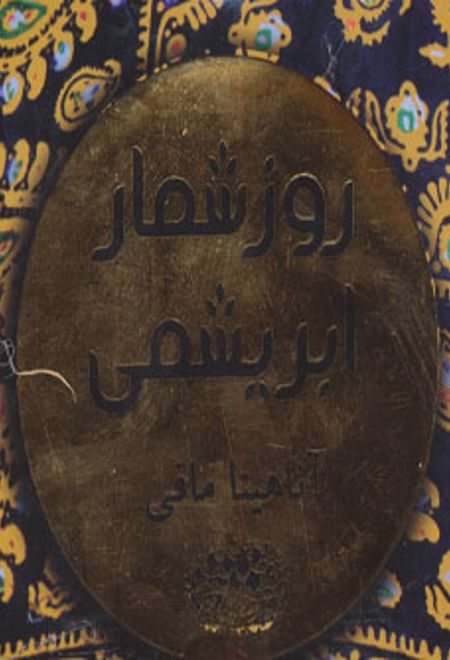 روزشمار
ابریشمی
آناهیتا مافی